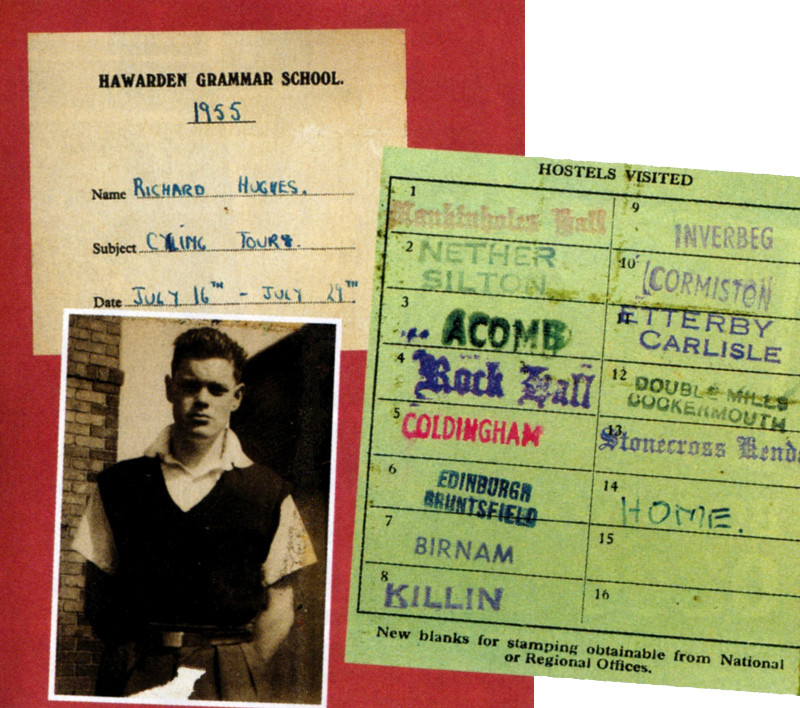 HAWARDEN GRAMMAR SCHOOL.
1955
Name RICHARD HUGHES.
Subject CYLING TOUR.
Date JULY 16TH - JULY 29TH.
HOSTELS VISITED
1
Mankinholes Hall
2
NETHER
SILTON
3
ACOMB
4
Rock Hall
5
COLDINGHAM
6
EDINBURGH
BRUNTSFIELD
7
BIRNAM
8
KILLIN
9
INVERBEG
10
CORMISTON
ETTERBY
CARLISLE
12
DOUBLE MILLS
COCKERMOUTH
13
Stonecross Kend
14
HOME.
15
16
New blanks for stamping obtainable from National
or Regional Offices.